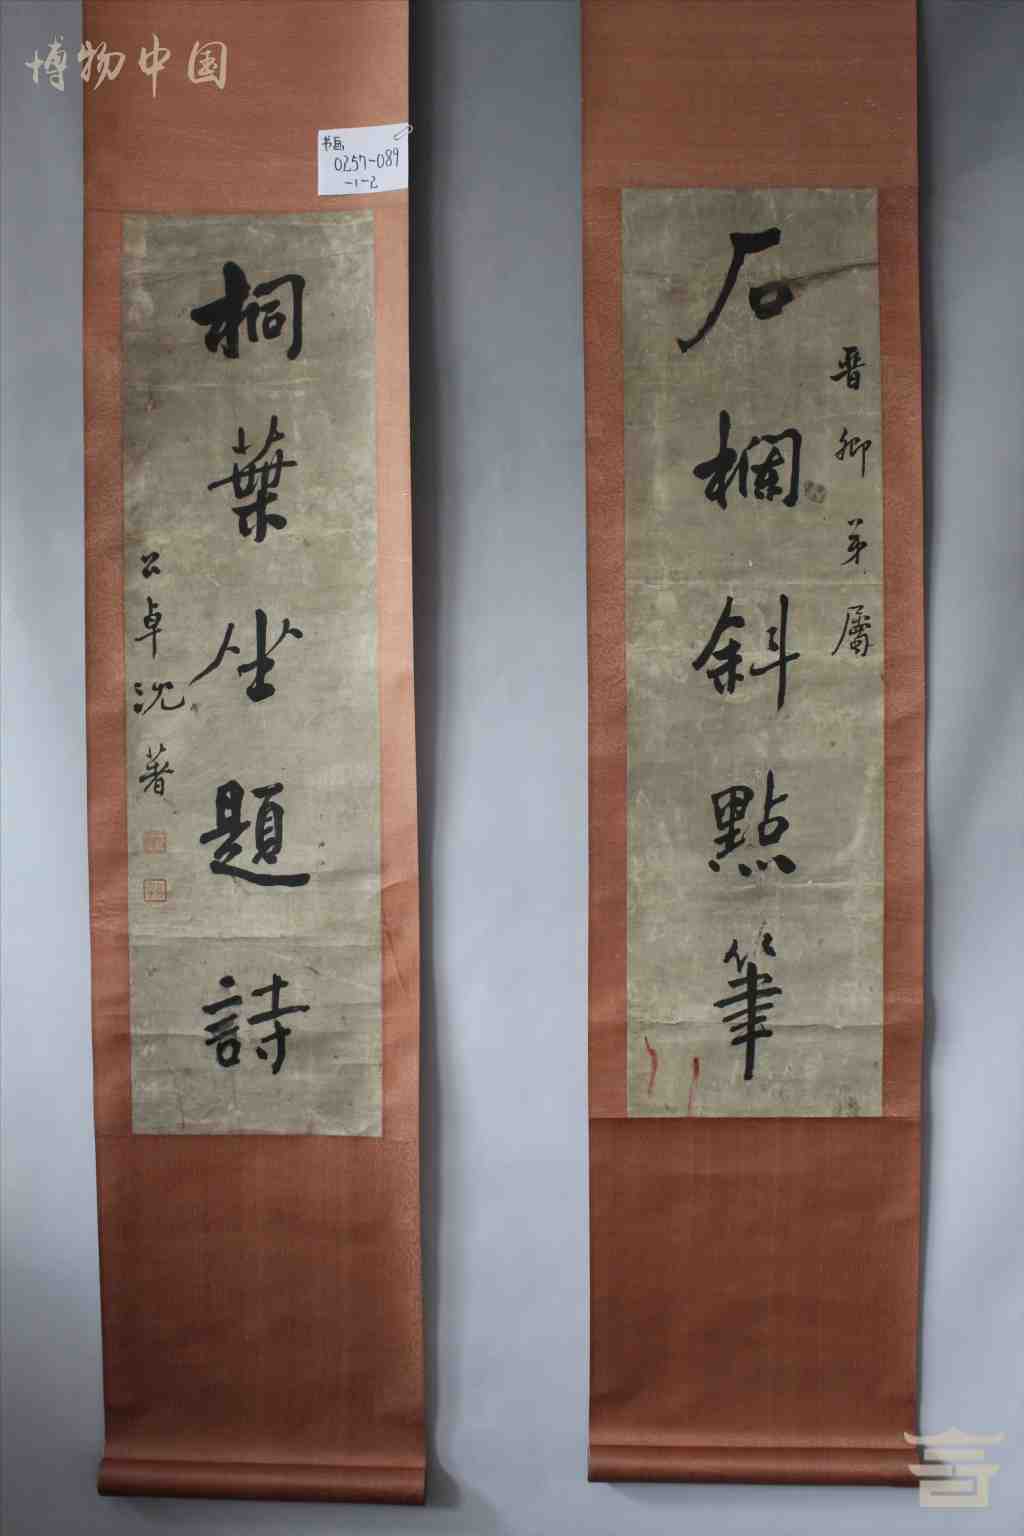 博物中国
书画
0257-089
-1-2
晋卿弟属
石欄斜點筆
桐葉坐題詩
公卓沈著